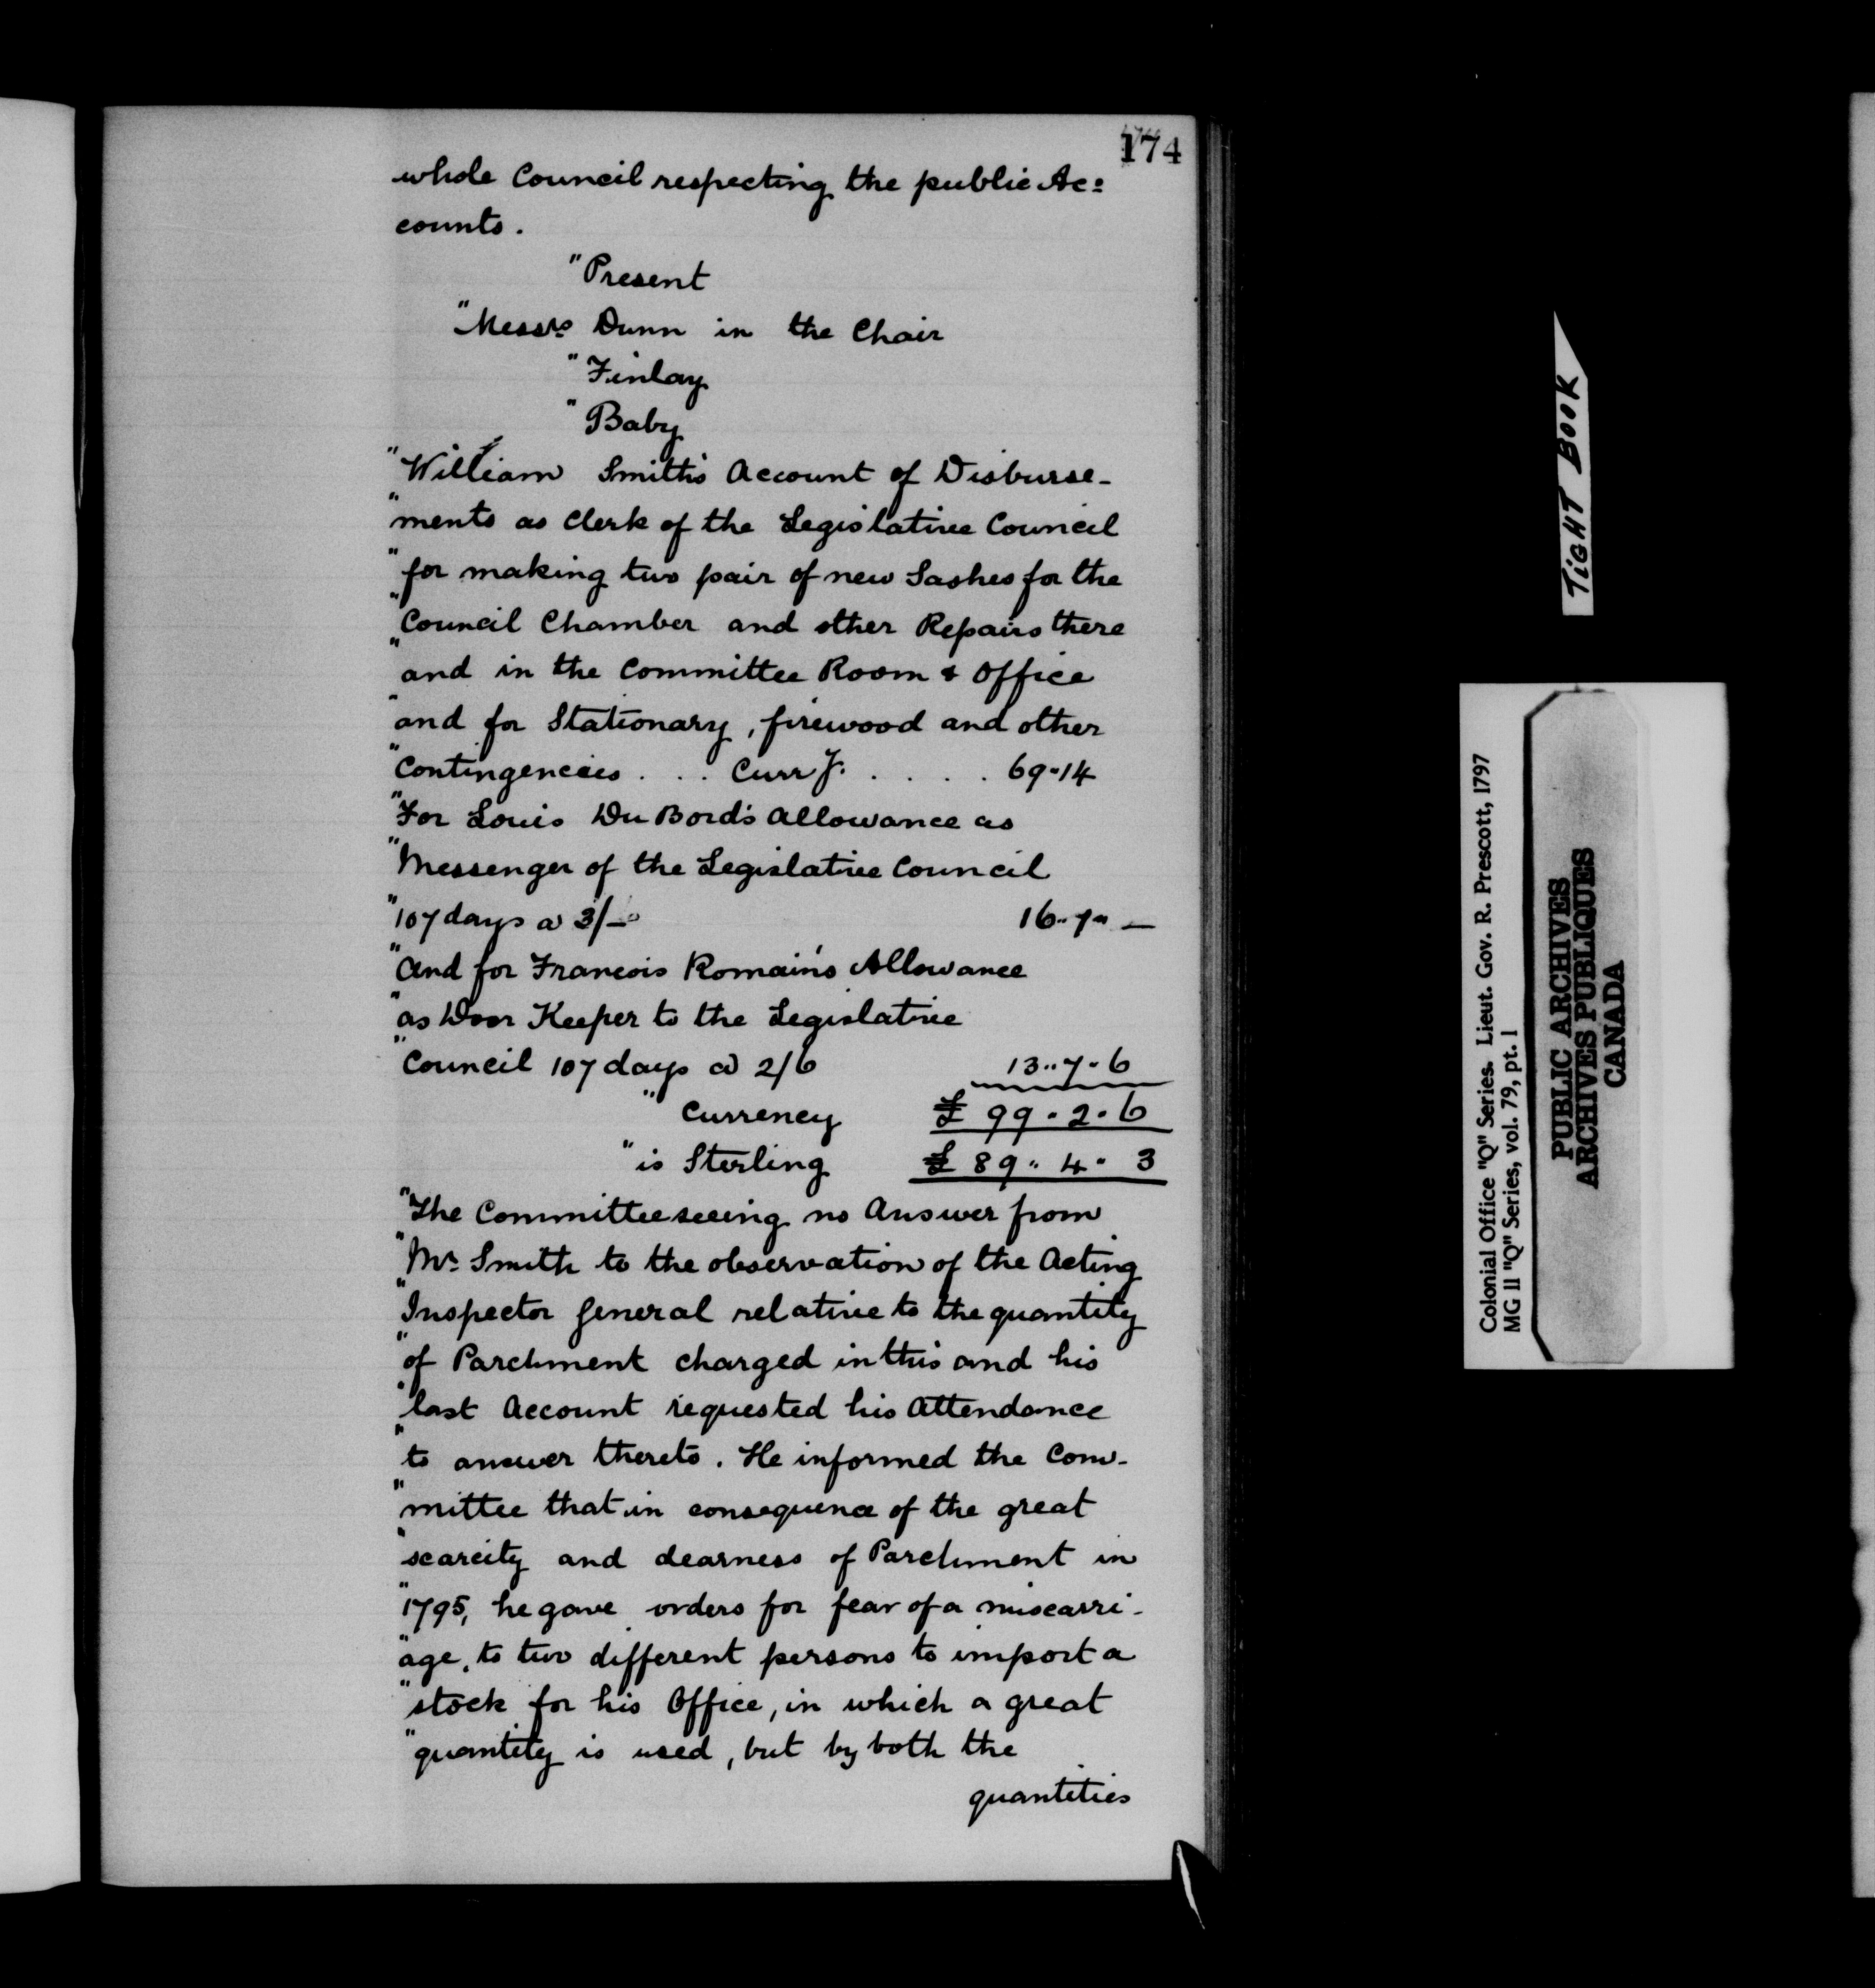 174
whole Council respecting the public Ac=
counts.
"Present
"Messrs Dunn in the Chair
"Finlay
"Baby
"William Smith's Account of Disburse-
"ments as Clerk of the Legislative Council
"for making two pair of new Sashes for the
"Council Chamber and other Repairs there
"and in the Committee Room & Office
"and for Stationary, firewood and other
"Contingencies . . . Curry. . . . . . 69"14
"For Louis Du Bord's allowance as
"Messenger of the Legislative Council
"107 days @ 3/- 16"1" —
"And for Francois Romain's Allowance
"as Door Keeper to the Legislative
"Council 107 days @ 2/6 13"7"6
"Currency £ 99"2"6
"is Sterling £ 89"4"3
"The Committee seeing no Answer from
"Mr. Smith to the observation of the Acting
"Inspector General relative to the quantity
"of Parchment charged in this and his
"last Account requested his attendance
"to answer thereto. He informed the Com-
"mittee that in consequence of the great
"scarcity and dearness of Parchment in
"1795, he gave orders for fear of a miscarri-
"age, to two different persons to import a
"stock for his Office, in which a great
"quantity is used, but by both the
quantities
TIGHT BOOK
Colonial Office "Q" Series. Lieut. Gov. R. Prescott, 1797
MG 11 "Q" Series, vol. 79, pt. 1
PUBLIC ARCHIVES
ARCHIVES PUBLIQUES
CANADA